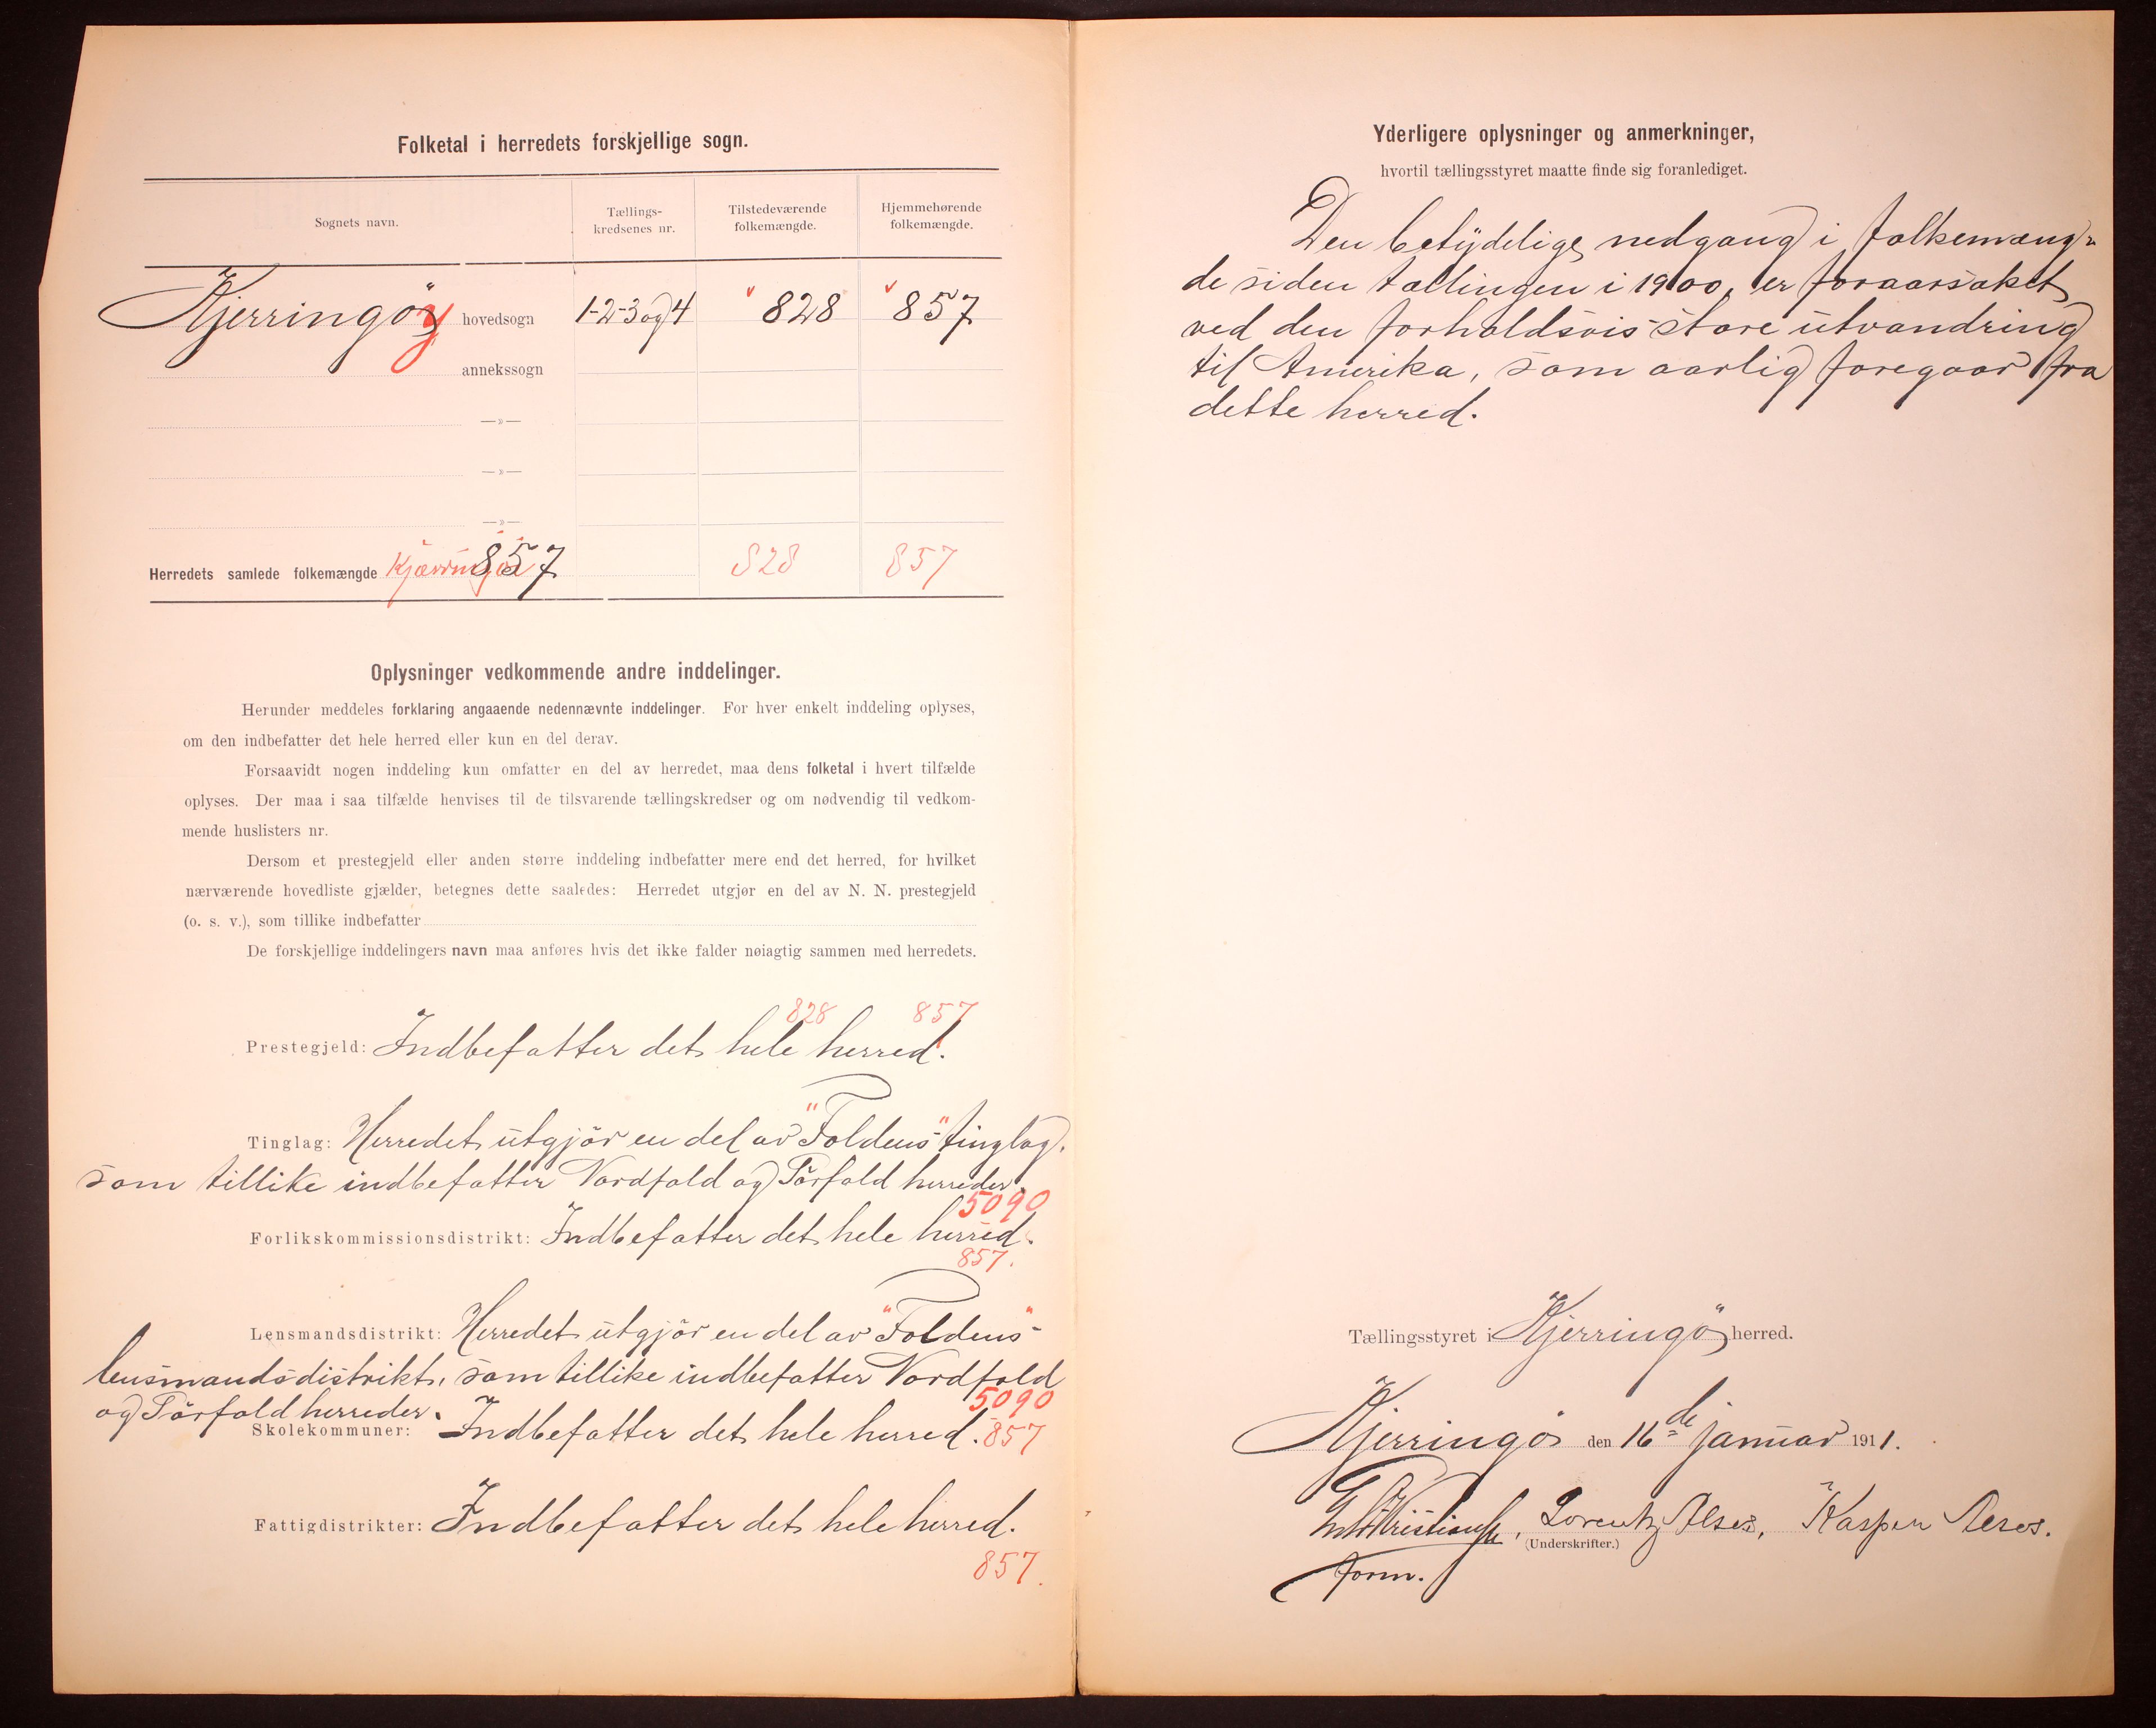 Folketal i herredets forskjellige sogn.
Sognets navn.
Tællings-
kredsenes nr.
Tilstedeværende
folkemængde.
Hjemmehørende
folkemængde.
Kjerringöy hovedsogn 1-2-3 og 4 828 857
annekssogn
—»—
—»—
—»—
Herredets samlede folkemængde Kjærringöi 857 828 857
Oplysninger vedkommende andre inddelinger.
Herunder meddeles forklaring angaaende nedennævnte inddelinger. For hver enkelt inddeling oplyses,
om den indbefatter det hele herred eller kun en del derav.
Forsaavidt nogen inddeling kun omfatter en del av herredet, maa dens folketal i hvert tilfælde
oplyses. Der maa i saa tilfælde henvises til de tilsvarende tællingskredser og om nødvendig til vedkom-
mende huslisters nr.
Dersom et prestegjeld eller anden større inddeling indbefatter mere end det herred, for hvilket
nærværende hovedliste gjælder, betegnes dette saaledes: Herredet utgjør en del av N. N. prestegjeld
(o. s. v.), som tillike indbefatter
De forskjellige inddelingers navn maa anføres hvis det ikke falder nøiagtig sammen med herredets.
828 857
Prestegjeld: Indbefatter det hele herred.
Tinglag: Herredet utgjör en del av "Foldens" tinglag,
som tillike indbefatter Nordfold og Sörfold herreder.
5090
Forlikskommissionsdistrikt: Indbefatter det hele herred.
857.
Lensmandsdistrikt: Herredet utgjör en del av "Foldens"
lensmandsdistrikt, som tillike indbefatter Nordfold
og Sörfold herreder. 5090
Skolekommuner: Indbefatter det hele herred. 857
Fattigdistrikter: Indbefatter det hele herred.
857.
Yderligere oplysninger og anmerkninger,
hvortil tællingsstyret maatte finde sig foranlediget.
Den betydelige nedgang i folkemæng-
de siden tællingen i 1900, er foraarsaket
ved den forholdsvis store utvandring
til Amerika, som aarlig foregaar fra
dette herred.
Tællingsstyret i Kjerringö herred.
Kjerringö den 16de januar 1911.
Kristiansen, Lorentz Olsen, Kasper
(Underskrifter.)
form.